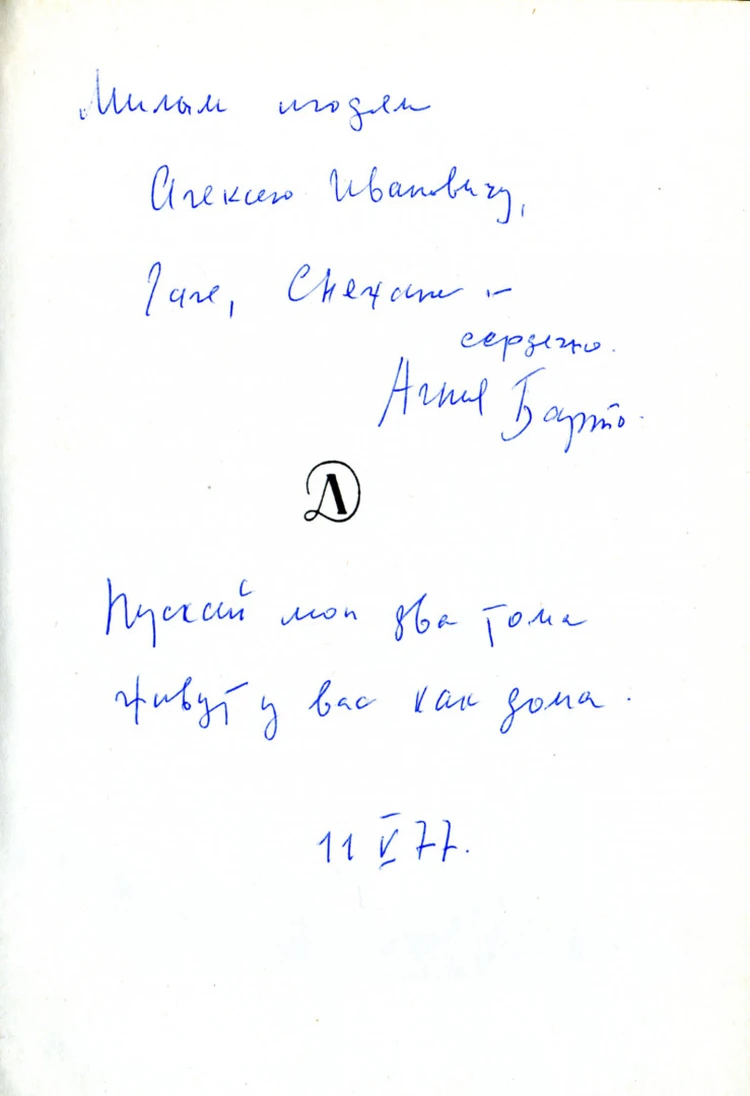 Милым людям
Алексею Ивановичу,
Гале, Снежане –
сердечно.
Агния Барто.
Д
Пускай мои два тома
живут у вас как дома.
11 V 77.